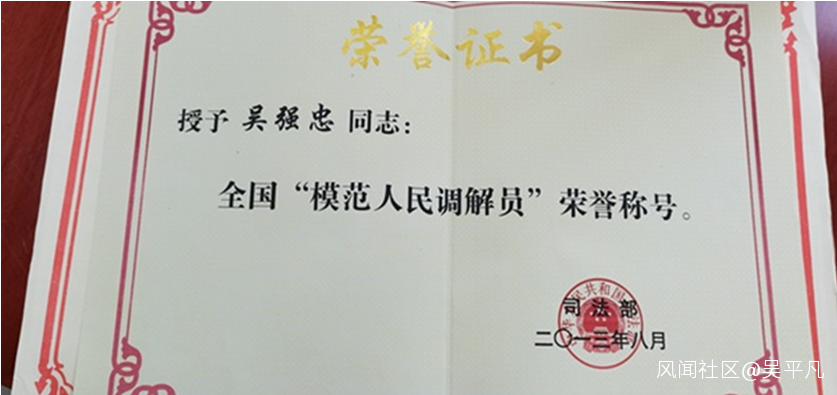 荣誉证书
授予 吴强忠 同志：
全国“模范人民调解员”荣誉称号。
司法部
二〇一三年八月
风闻社区@吴平凡